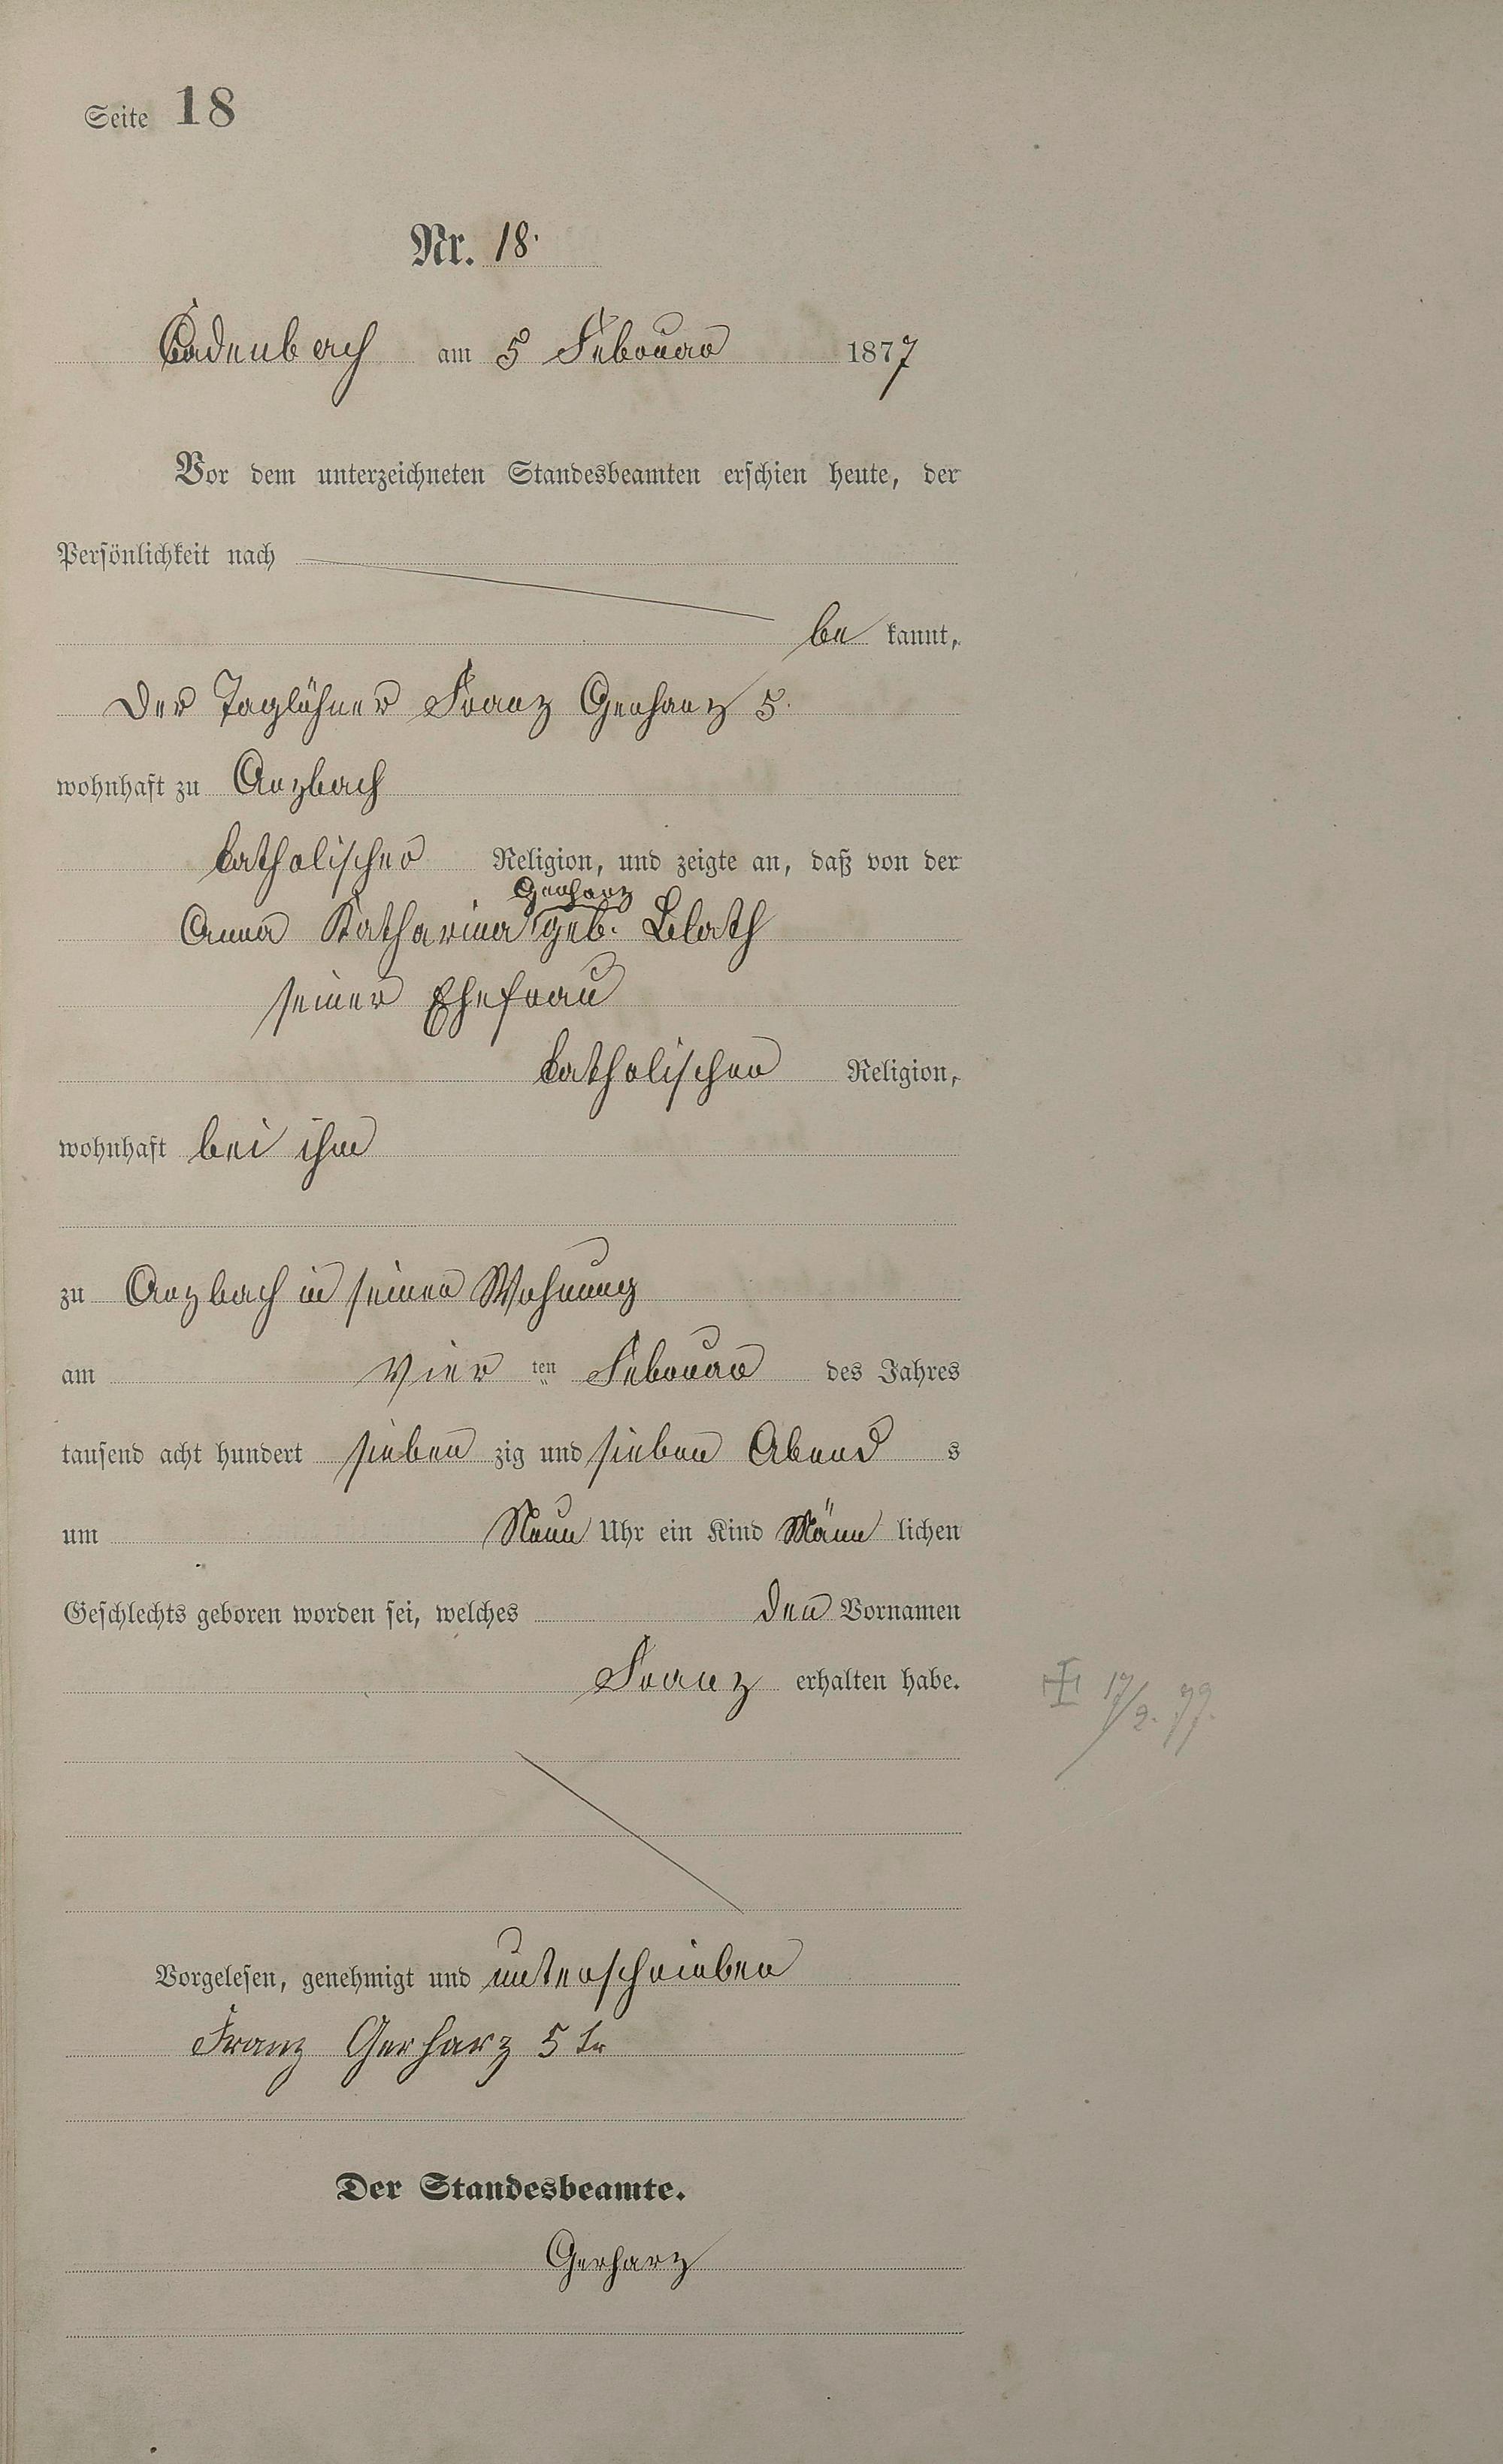 Seite 18
Nr. 18.
Cadenbach am 5 Februar 1877
Vor dem unterzeichneten Standesbeamten erschien heute, der
Persönlichkeit nach
be kannt,
Der Taglöhner Franz Gerharz 5.
wohnhaft zu Arzbach
katholischer Religion, und zeigte an, daß von der
Gerharz
Anna Katharina geb. Blath
seiner Ehefrau
katholischer Religion,
wohnhaft bei ihm
zu Arzbach in seiner Wohnung
am Vier ten Februar des Jahres
tausend acht hundert sieben zig und sieben Abend s
um Neun Uhr ein Kind Männ lichen
Geschlechts geboren worden sei, welches den Vornamen
Franz erhalten habe.
17/2. 79.
Vorgelesen, genehmigt und unterschrieben
Franz Gerharz 5te
Der Standesbeamte.
Gerharz